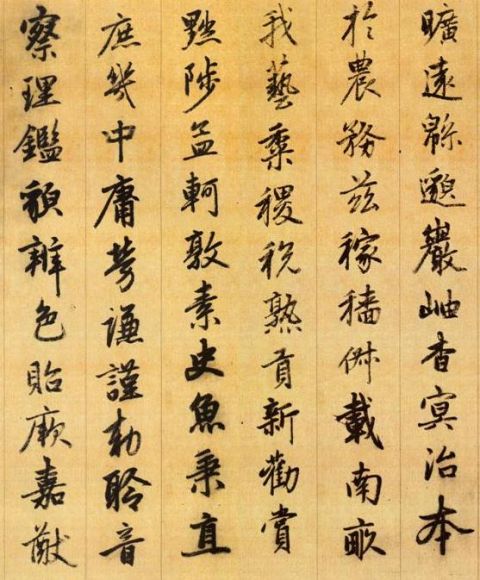 曠遠緜邈巖岫杳冥治本
於農務茲稼穡俶載南畝
我藝黍稷稅熟貢新勸賞
黜陟孟軻敦素史魚秉直
庶幾中庸勞謙謹勅聆音
察理鑑䫉辨色貽厥嘉猷